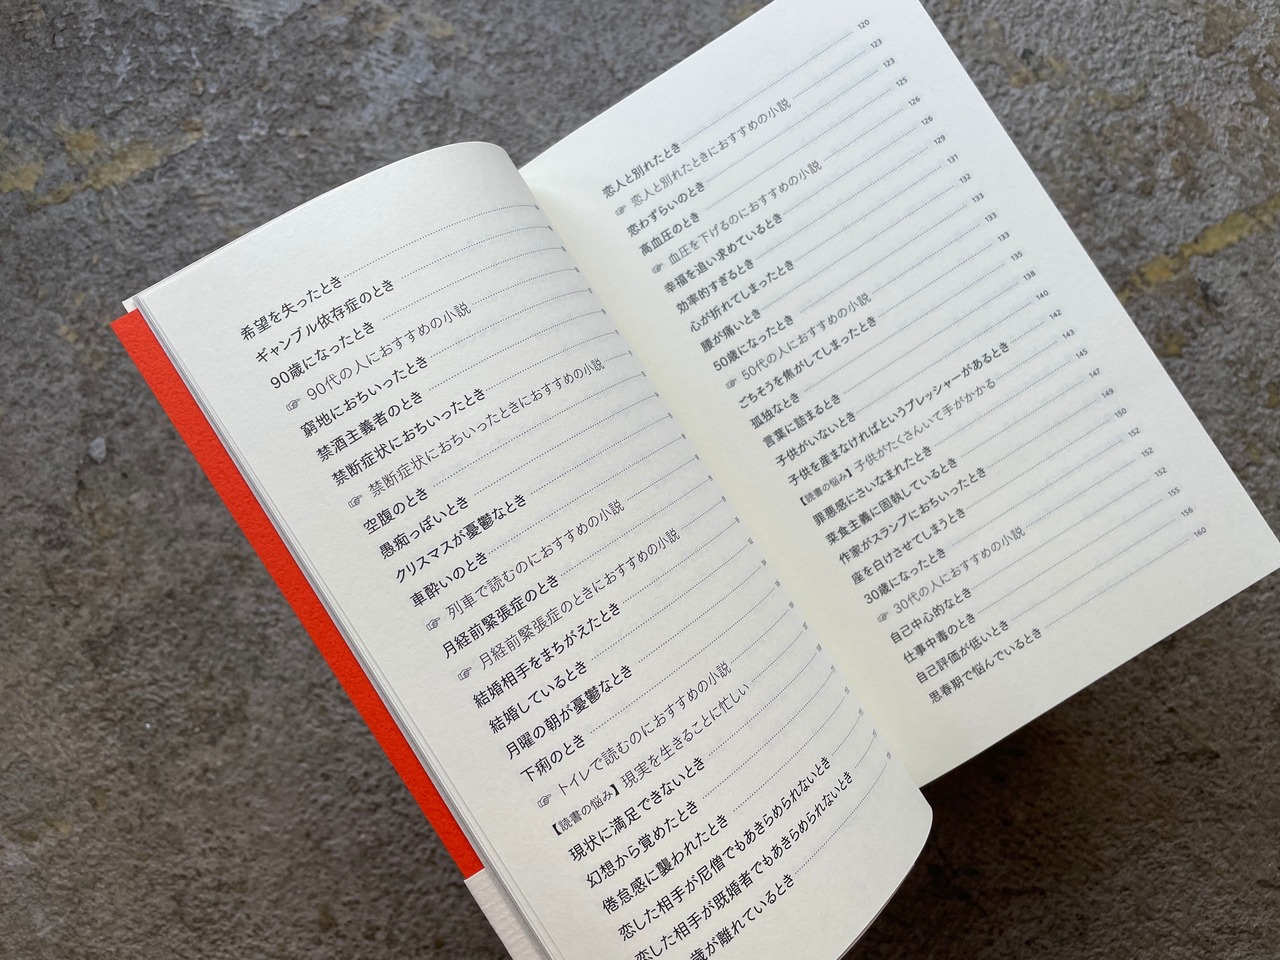 希望を失ったとき
ギャンブル依存症のとき
90歳になったとき
☞ 90代の人におすすめの小説
窮地におちいったとき
禁酒主義者のとき
禁断症状におちいったとき
☞ 禁断症状におちいったときにおすすめの小説
空腹のとき
愚痴っぽいとき
クリスマスが憂鬱なとき
車酔いのとき
☞ 列車で読むのにおすすめの小説
月経前緊張症のとき
☞ 月経前緊張症のときにおすすめの小説
結婚相手をまちがえたとき
結婚しているとき
月曜の朝が憂鬱なとき
下痢のとき
☞ トイレで読むのにおすすめの小説
【読書の悩み】現実を生きることに忙しい
現状に満足できないとき
幻想から覚めたとき
倦怠感に襲われたとき
恋した相手が尼僧でもあきらめられないとき
恋した相手が既婚者でもあきらめられないとき
歳が離れているとき
恋人と別れたとき 120
☞ 恋人と別れたときにおすすめの小説 123
恋わずらいのとき 123
高血圧のとき 125
☞ 血圧を下げるのにおすすめの小説 126
幸福を追い求めているとき 126
効率的すぎるとき 129
心が折れてしまったとき 131
腰が痛いとき 132
50歳になったとき 133
☞ 50代の人におすすめの小説 133
ごちそうを焦がしてしまったとき 133
孤独なとき 135
言葉に詰まるとき 138
子供がいないとき 140
子供を産まなければというプレッシャーがあるとき 142
【読書の悩み】子供がたくさんいて手がかかる 143
罪悪感にさいなまれたとき 145
菜食主義に固執しているとき 147
作家がスランプにおちいったとき 149
座を白けさせてしまうとき 150
30歳になったとき 152
☞ 30代の人におすすめの小説 152
自己中心的なとき 152
仕事中毒のとき 155
自己評価が低いとき 156
思春期で悩んでいるとき 160